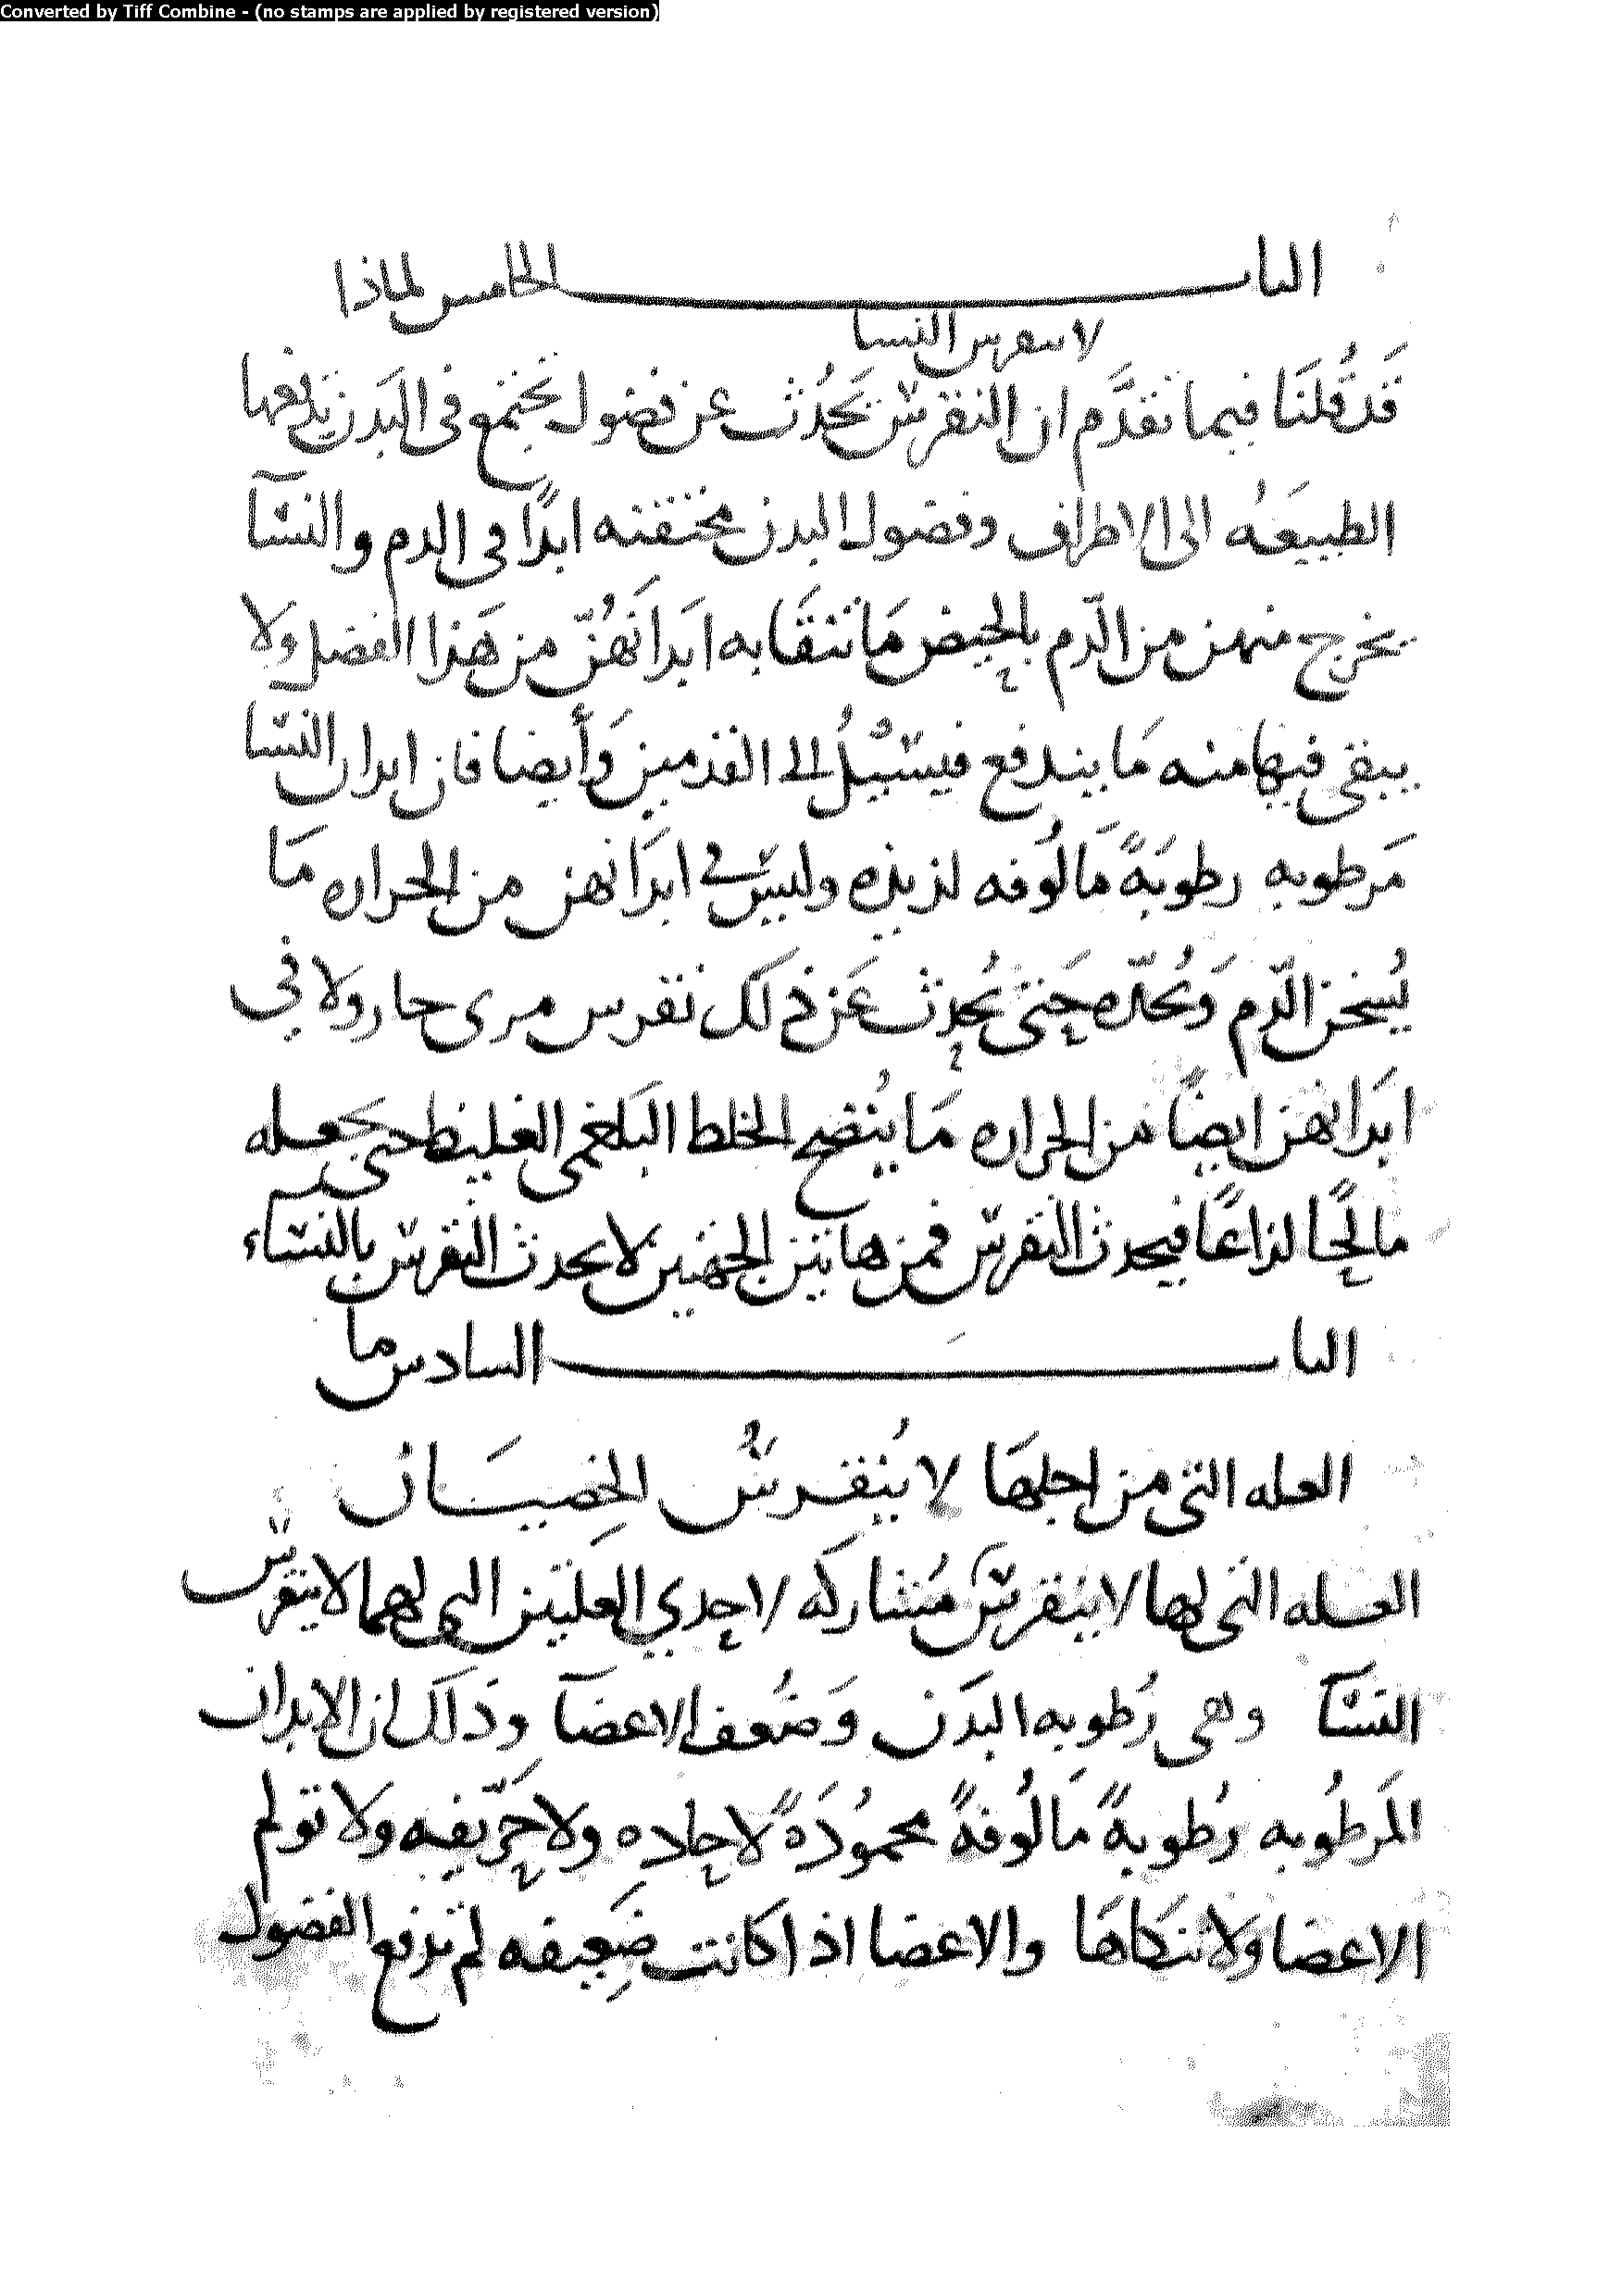 Converted by Tiff Combine - (no stamps are applied by registered version)
الباب الخامس لماذا
لا ينقرس النسا
قَد قُلنَا فيما تقدَّم ان النقرس يَحدُث عن فضول تجتمع فى البَدن تدفعها
الطبيعَه الى الاطراف وفضول البدن مختقنه ابدًا فى الدم والنسآ
يخرج منهن من الدّم بالحيض مَا تنقَا به ابدَانهُنّ من هَذا الفضل ولا
يبقى فيها منه مَا يندفع فيسيلُ الى القدمين وَأيضا فان ابدان النسا
مَرطوبه رطوبَةً مَالُوفه لذيذه وليس فى ابدَانهن من الحراره مَا
يُسخن الدّم وَيُحدّه حَتى يحدُث عَن ذلك نقرس مرى حار ولا في
ابدَانهن ايضًا من الحراره مَا يُنضج الخلط البَلغمى الغليظ حتى يجعله
مالحًا لذاعًا فيحدث النقرس فمن هاتين الجهتين لا يحدث النقرس بالنساء
الباب السادس ما
العله التى من اجلهَا لا يُنقرسُ الخِصيَان
العله التى لها لا ينقرس مُشاركه لاحدي العلتين التى لهما لا ينقرس
النسآ وهى رُطوبه البَدَن وَضُعف الاعضآ وذَلَك ان الابدان
المَرطُوبه رُطوبةً مَالُوفةً محمُودَةً لا حاده ولا حَرِّيفه ولا تولم
الاعضا ولا تنكاهَا والاعضا اذا كانت ضَعِيفه لم تدفع الفضول